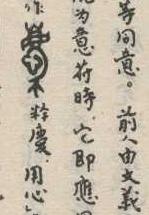 等同意。前人由文義
为意符時，它即應
作不粹慶，用心